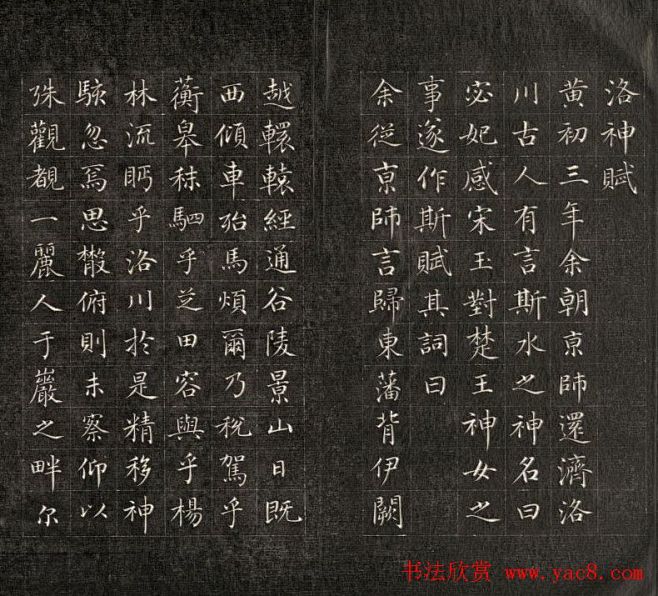 洛神賦
黄初三年余朝亰師還濟洛
川古人有言斯水之神名曰
宓妃感宋玉對楚王神女之
事遂作斯賦其詞曰
余從亰師言歸東藩背伊闕
越轘轅經通谷陵景山日既
西傾車殆馬煩爾乃稅駕乎
蘅皋秣駟乎芝田容與乎楊
林流眄乎洛川於是精移神
駭忽焉思散俯則未察仰以
殊觀覩一麗人于巖之畔尔
书法欣赏 www.yac8.com